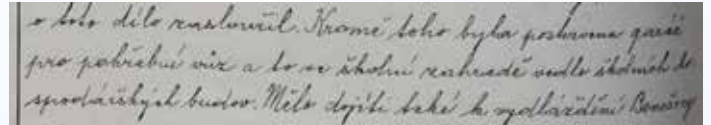 o toto dílo zasloužil. Kromě toho byla postavena garáž
pro pohřební vůz a to ve školní zahradě vedle školních ho
spodářských budov. Mělo dojíti také k vydláždění Benešovy